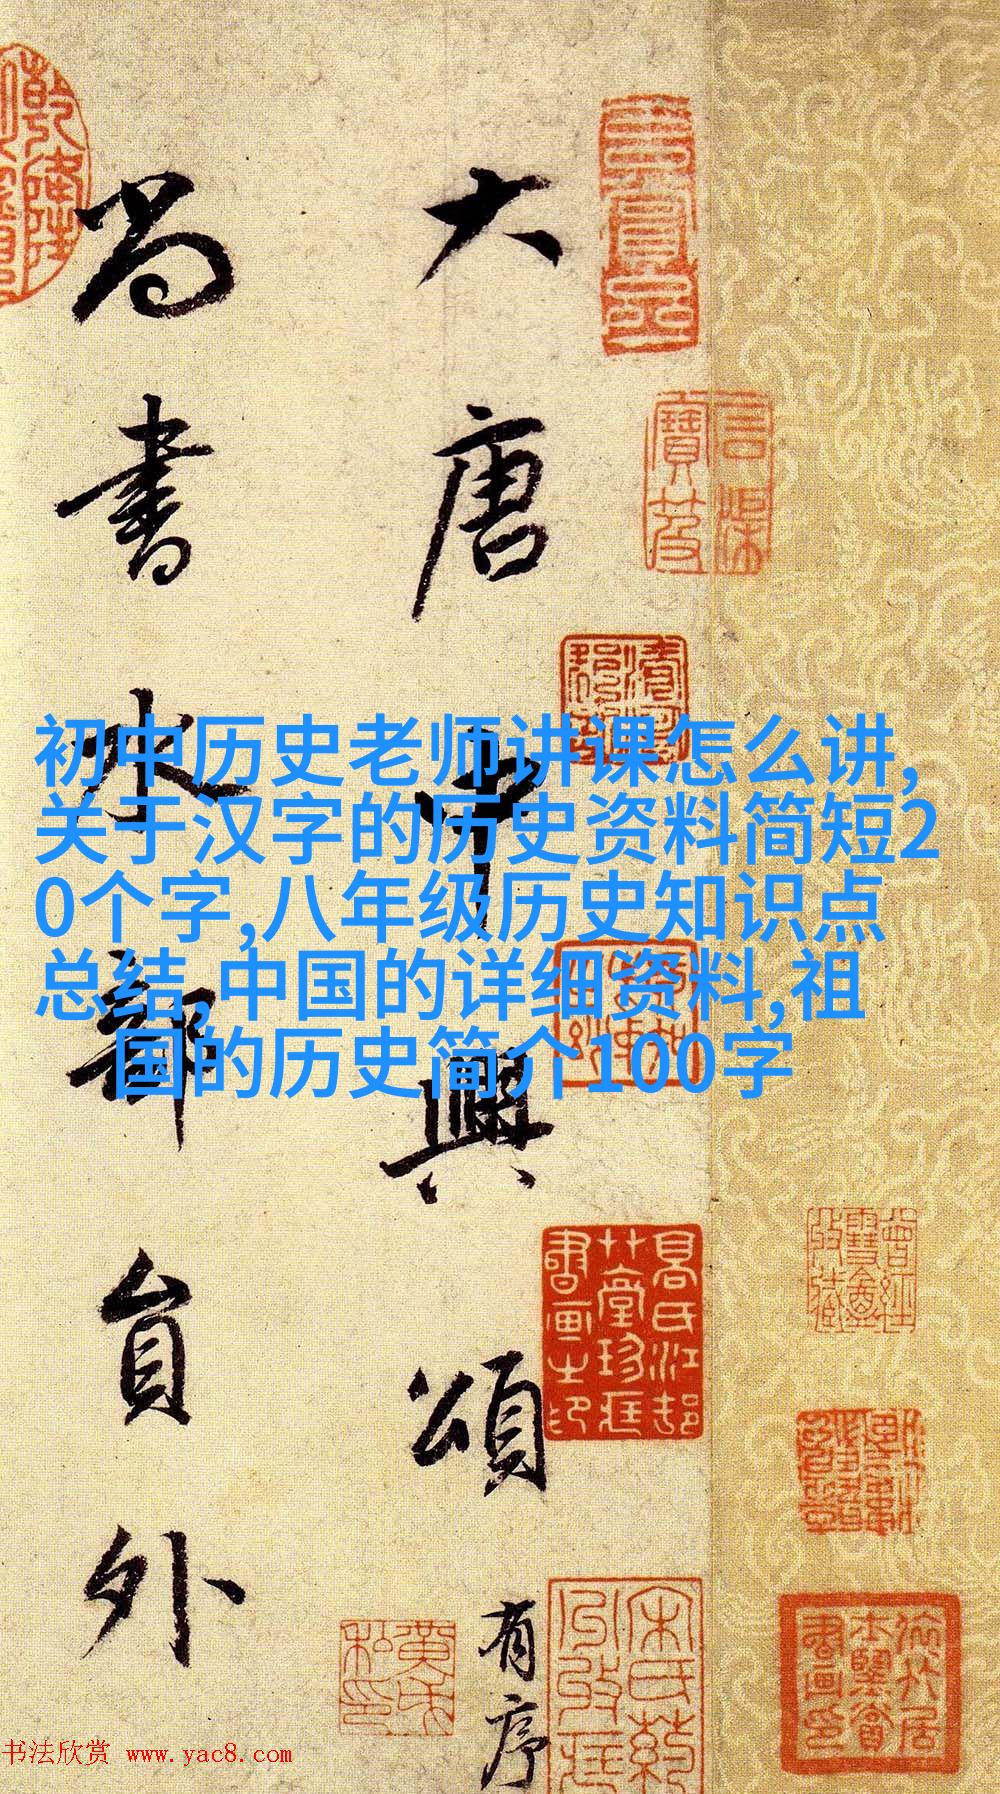 大唐中興頌
有序
尚書水部員外
初中历史老师讲课怎么讲,
关于汉字的历史资料简短2
0个字,八年级历史知识点
总结,中国的详细资料,祖
国的历史简介100字
高氏江邨草堂珍庄書画之印
书法欣赏 www.yac8.com